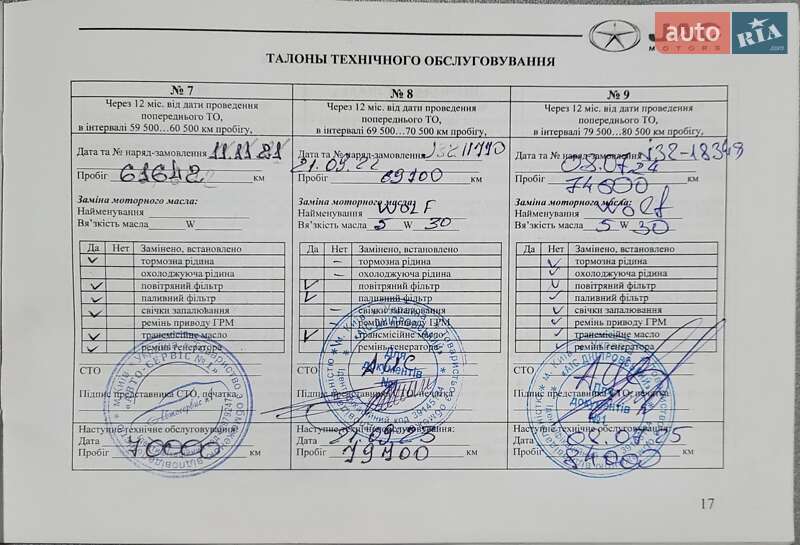 JAC
MOTORS
auto RIA .com
ТАЛОНЫ ТЕХНІЧНОГО ОБСЛУГОВУВАННЯ
№ 7
Через 12 міс. від дати проведення
попереднього ТО,
в інтервалі 59 500…60 500 км пробігу,
Дата та № наряд-замовлення 11.11.21
Пробіг 61642 км
Заміна моторного масла:
Найменування
В'язкість масла W
Да Нет Замінено, встановлено
тормозна рідина
охолоджуюча рідина
повітряний фільтр
паливний фільтр
свічки запалювання
ремінь приводу ГРМ
трансмісійне масло
ремінь генератора
СТО
Підпис представника СТО, печатка
Наступне технічне обслуговування:
Дата
Пробіг 70000 км
№ 8
Через 12 міс. від дати проведення
попереднього ТО,
в інтервалі 69 500…70 500 км пробігу,
Дата та № наряд-замовлення
21.09.22
Пробіг 69100 км
Заміна моторного масла:
Найменування WOLF
В'язкість масла 5 W 30
Да Нет Замінено, встановлено
тормозна рідина
охолоджуюча рідина
повітряний фільтр
паливний фільтр
свічки запалювання
ремінь приводу ГРМ
трансмісійне масло
ремінь генератора
СТО
Підпис представника СТО, печатка
Наступне технічне обслуговування:
Дата 21.09.23
Пробіг 79100 км
№ 9
Через 12 міс. від дати проведення
попереднього ТО,
в інтервалі 79 500…80 500 км пробігу,
Дата та № наряд-замовлення j32-18348
03.07.24
Пробіг 74000 км
Заміна моторного масла:
Найменування Wolf
В'язкість масла 5 W 30
Да Нет Замінено, встановлено
тормозна рідина
охолоджуюча рідина
повітряний фільтр
паливний фільтр
свічки запалювання
ремінь приводу ГРМ
трансмісійне масло
ремінь генератора
СТО
Підпис представника СТО, печатка
Наступне технічне обслуговування:
Дата 02.07.25
Пробіг 84000 км
17